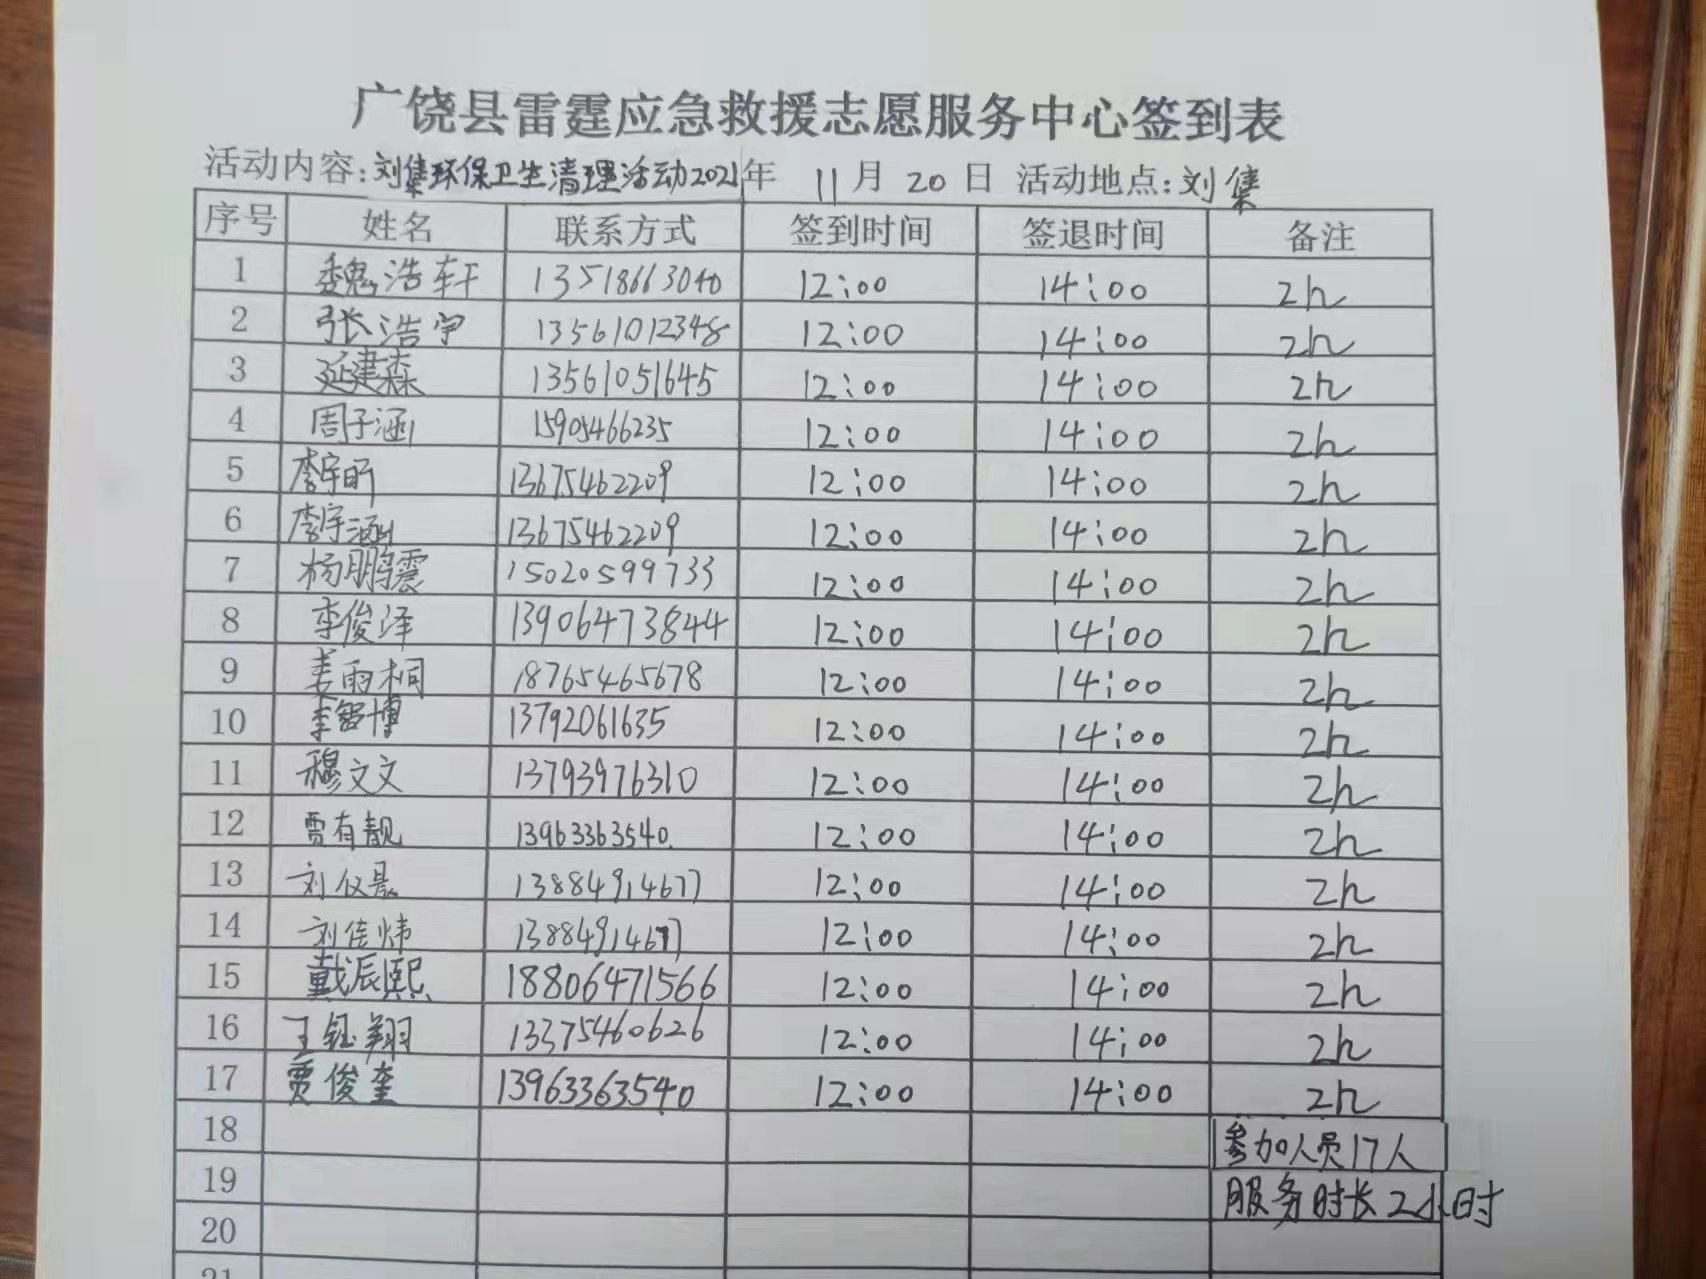 广饶县雷霆应急救援志愿服务中心签到表
活动内容:刘集环保卫生清理活动2021年 11月20日 活动地点:刘集
序号 姓名 联系方式 签到时间 签退时间 备注
1 魏浩轩 13518663040 12:00 14:00 2h
2 张浩宇 13561012348 12:00 14:00 2h
3 延建森 13561051645 12:00 14:00 2h
4 周子涵 15905466235 12:00 14:00 2h
5 李宇昕 13675462209 12:00 14:00 2h
6 李宇涵 13675462209 12:00 14:00 2h
7 杨鹏震 15020599733 12:00 14:00 2h
8 李俊泽 13906473844 12:00 14:00 2h
9 姜雨桐 18765465678 12:00 14:00 2h
10 李智博 13792061635 12:00 14:00 2h
11 穆文文 13793976310 12:00 14:00 2h
12 贾有靓 13963363540 12:00 14:00 2h
13 刘仪晨 13884914677 12:00 14:00 2h
14 刘佳炜 13884914677 12:00 14:00 2h
15 戴辰熙 18806471566 12:00 14:00 2h
16 王钰翔 13375460626 12:00 14:00 2h
17 贾俊奎 13963363540 12:00 14:00 2h
18 参加人员17人
19 服务时长2小时
20
21